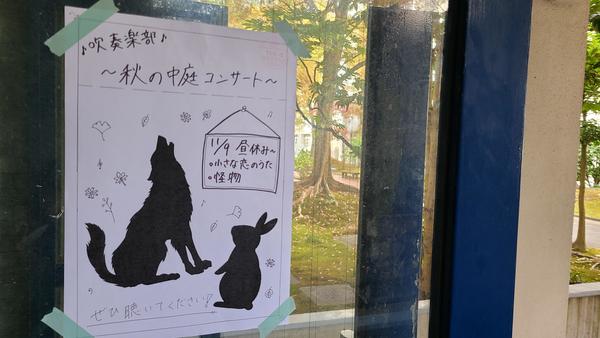 ♪吹奏楽部♪
～秋の中庭コンサート～
11/9 昼休み～
•小さな恋のうた
•怪物
ぜひ聴いてください!